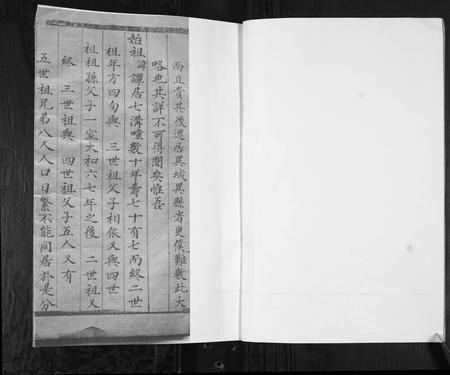 而且貴其後遷居異域異縣者更僕難數此大
略也其詳不可得聞矣惟吾
始祖諱譚居七溝疃數十年壽七十有七而終二世
祖年方四旬與 三世祖父子相依又與四世
祖祖孫父子一室太和六七年之後 二世祖又
終 三世祖與 四世祖父子五人又有
五世祖兄弟八人人口日繁不能同居於是分